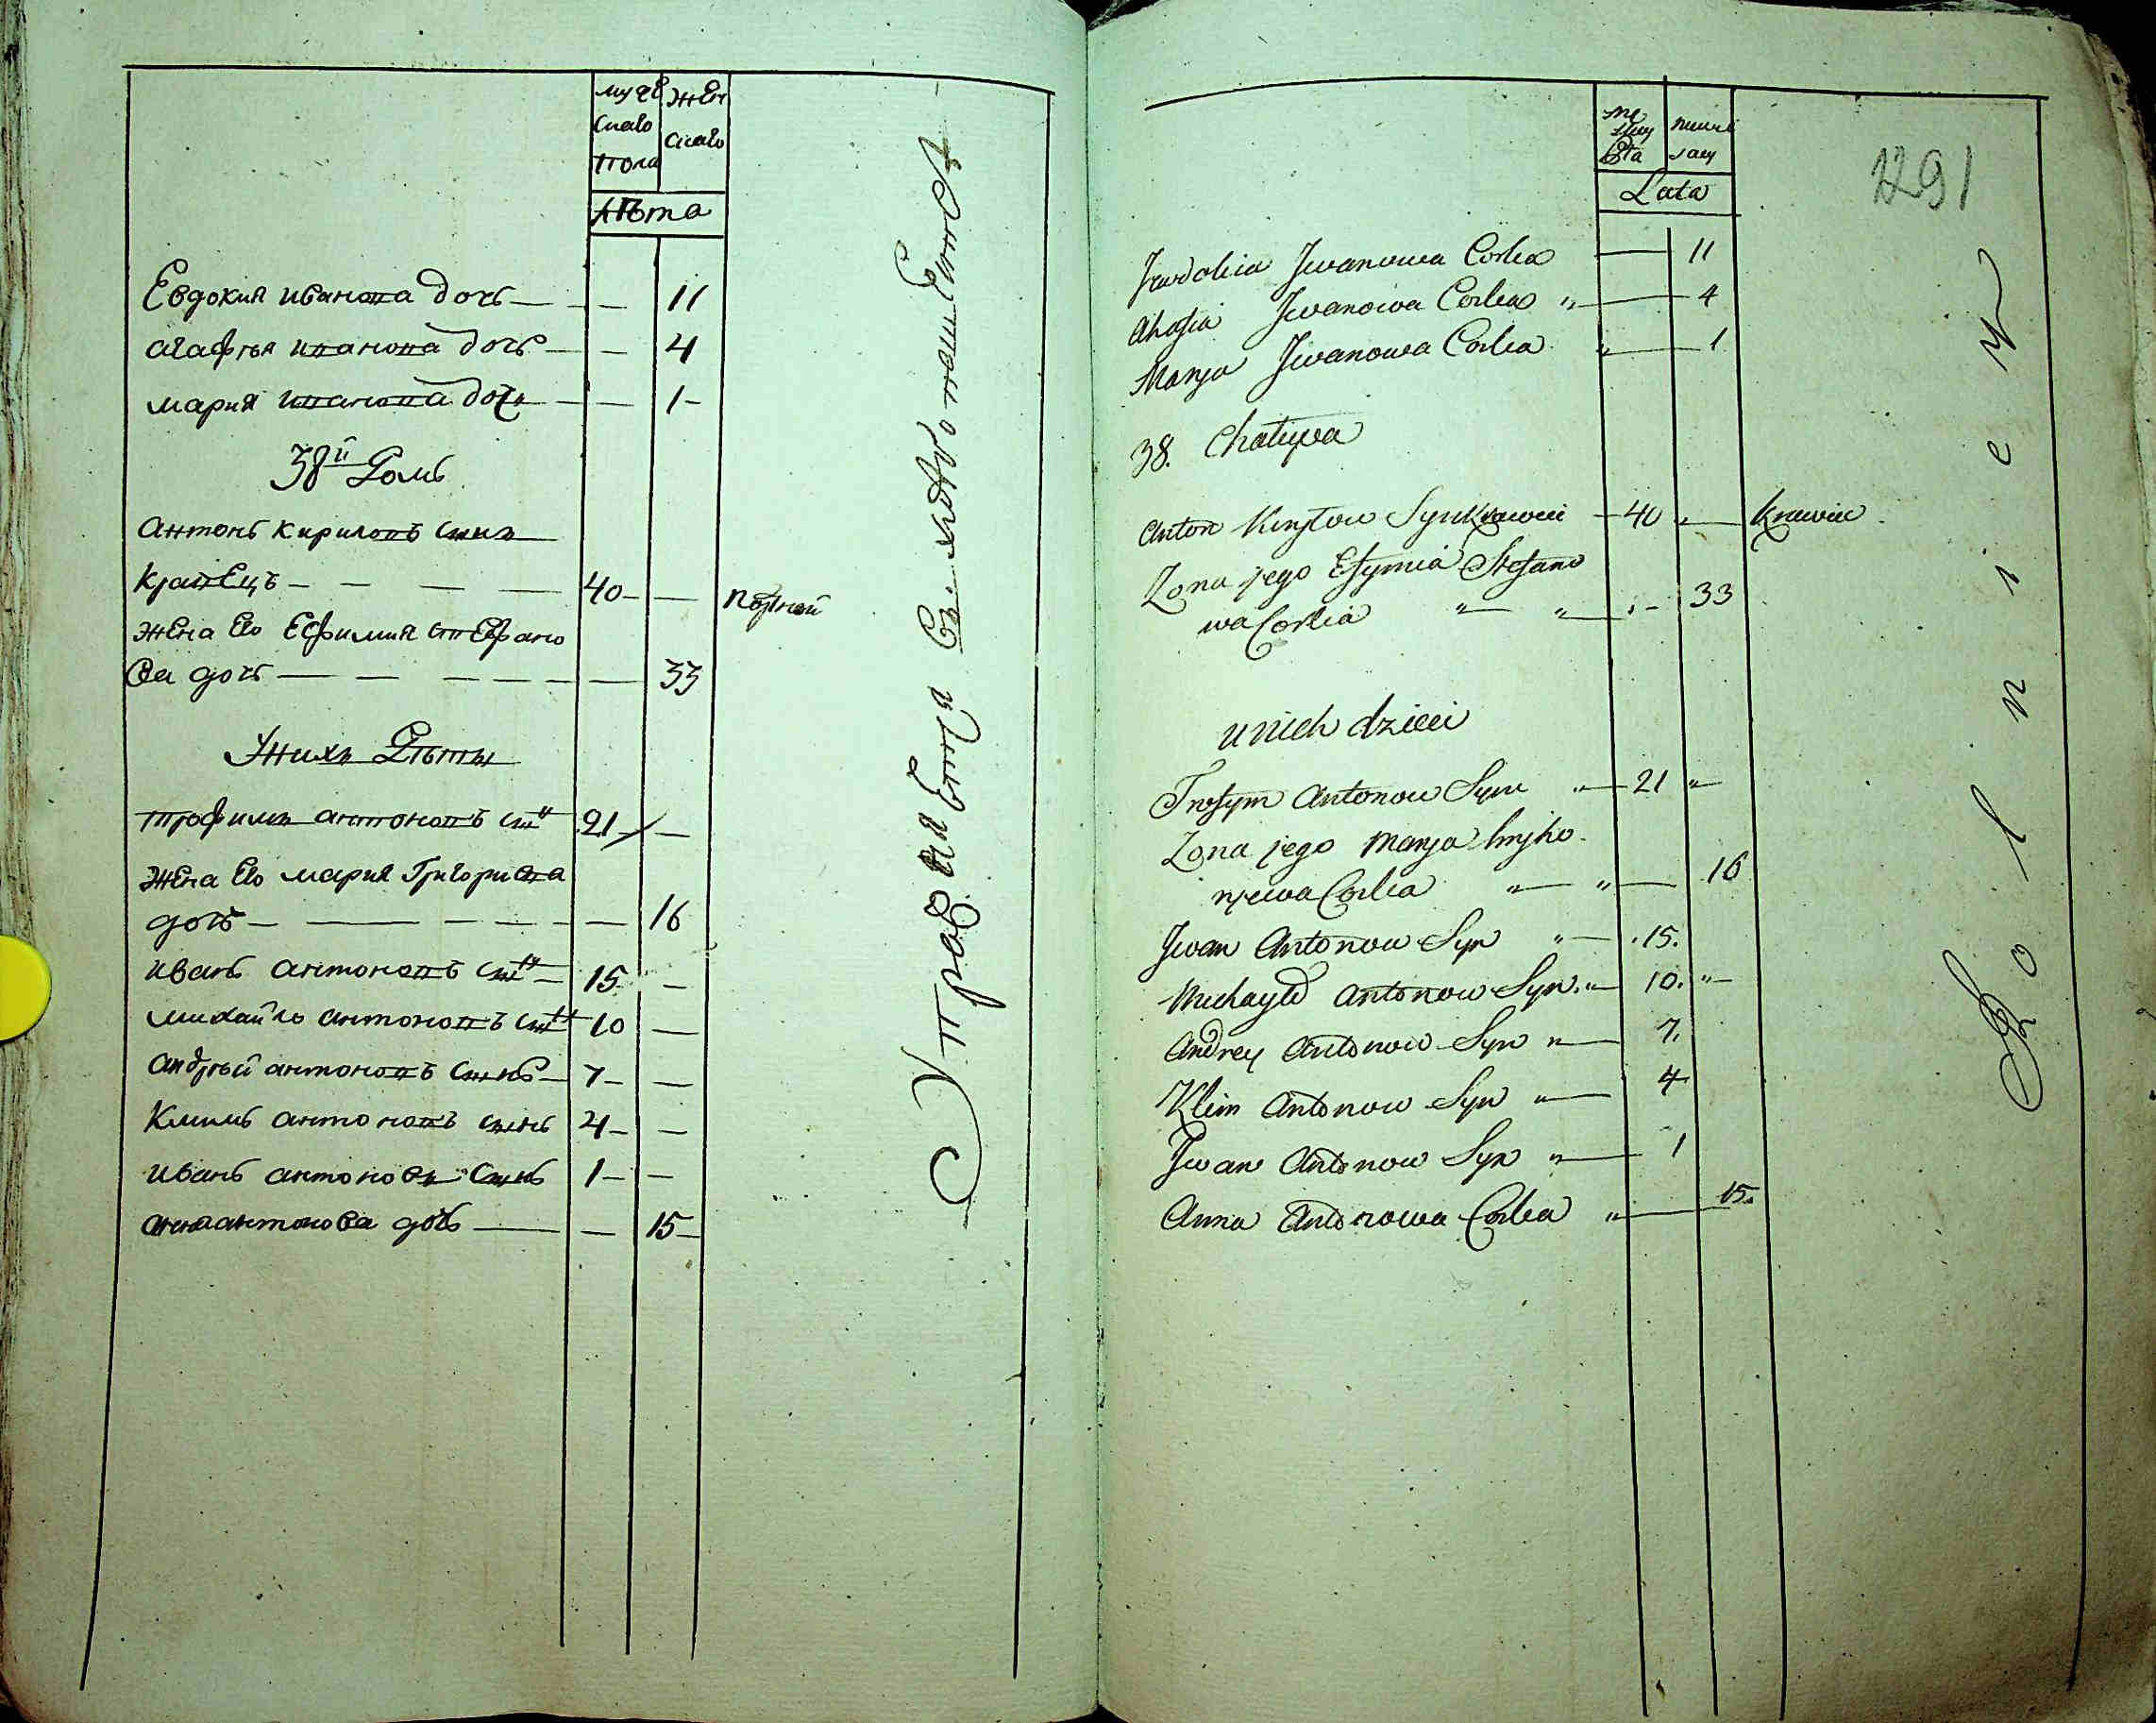 мужескаго пола
женскаго
лѣта
Евдокия Иванова дочь — — 11
Агафья Иванова дочь — — 4
Мария Иванова дочь — — 1
38й Домъ
Антонъ Кириловъ сынъ
Кравецъ — — — 40 — портной
Жена его Ефимия Стефано
ва дочь — — — — 33
У нихъ Дѣты
Трофимъ Антоновъ сынъ 21 —
Жена его Мария Григориева
дочь — — — — 16
Иванъ Антоновъ сынъ 15 —
Михайло Антоновъ сынъ 10 —
Андрѣй Антоновъ сынъ 7 —
Климъ Антоновъ сынъ 4 —
Иванъ Антоновъ сынъ 1 —
Анна Антонова дочь — — 15
Lata
1291
Jewdokia Jwanowa Corka — 11
Ahafia Jwanowa Corka „ — 4
Marya Jwanowa Corka „ — 1
38. Chatupa
Anton Kiryłow Syn Krawiec — 40 „ — Krawiec
Zona jego Efymia Stefano
wa Corka „ — „ — 33
u nich dzieci
Trofym Antonow Syn „ — 21 „ —
Zona jego Marya Hryho
ryewa Corka „ — „ — 16
Jwan Antonow Syn „ — 15.
Michayło Antonow Syn „ — 10. „ —
Andrey Antonow Syn „ — 7.
Klim Antonow Syn „ — 4
Jwan Antonow Syn „ — 1
Anna Antonowa Corka „ — 15.